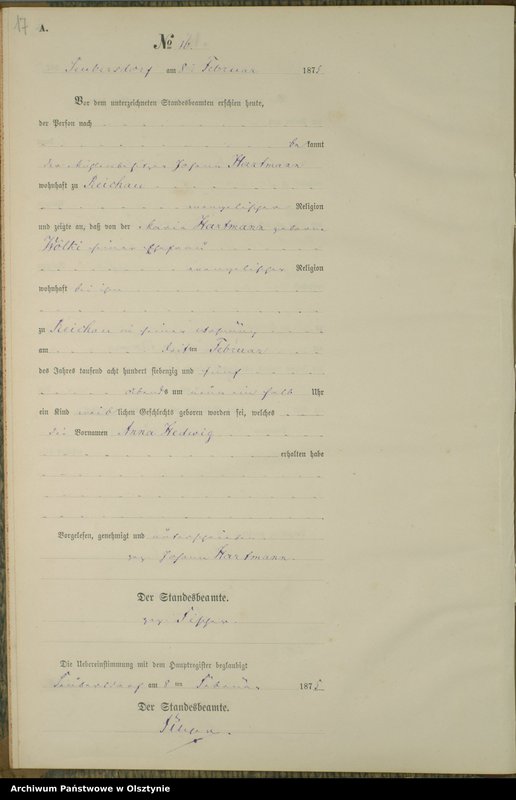 17
A.
No 16.
Seubersdorf am 8 ten Februar 1875
Vor dem unterzeichneten Standesbeamten erschien heute,
der Person nach
be kannt
der Johann Hartmann
wohnhaft zu Reichau
evangelischer Religion
und zeigte an, daß von der Maria Hartmann geborene
Wölki seiner Ehefrau
evangelischer Religion
wohnhaft bei ihm
zu Reichau in seiner Wohnung
am Februar
des Jahres tausend acht hundert siebenzig und fünf
Abends um neun ein halb Uhr
ein Kind weib lichen Geschlechts geboren worden sei, welches
die Vornamen Anna Hedwig
erhalten habe
Vorgelesen, genehmigt und unterschrieben
gez Johann Hartmann.
Der Standesbeamte.
gez
Die Uebereinstimmung mit dem Hauptregister beglaubigt
Seubersdorf am 8 ten Februar 1875
Der Standesbeamte.
Archiwum Państwowe w Olsztynie